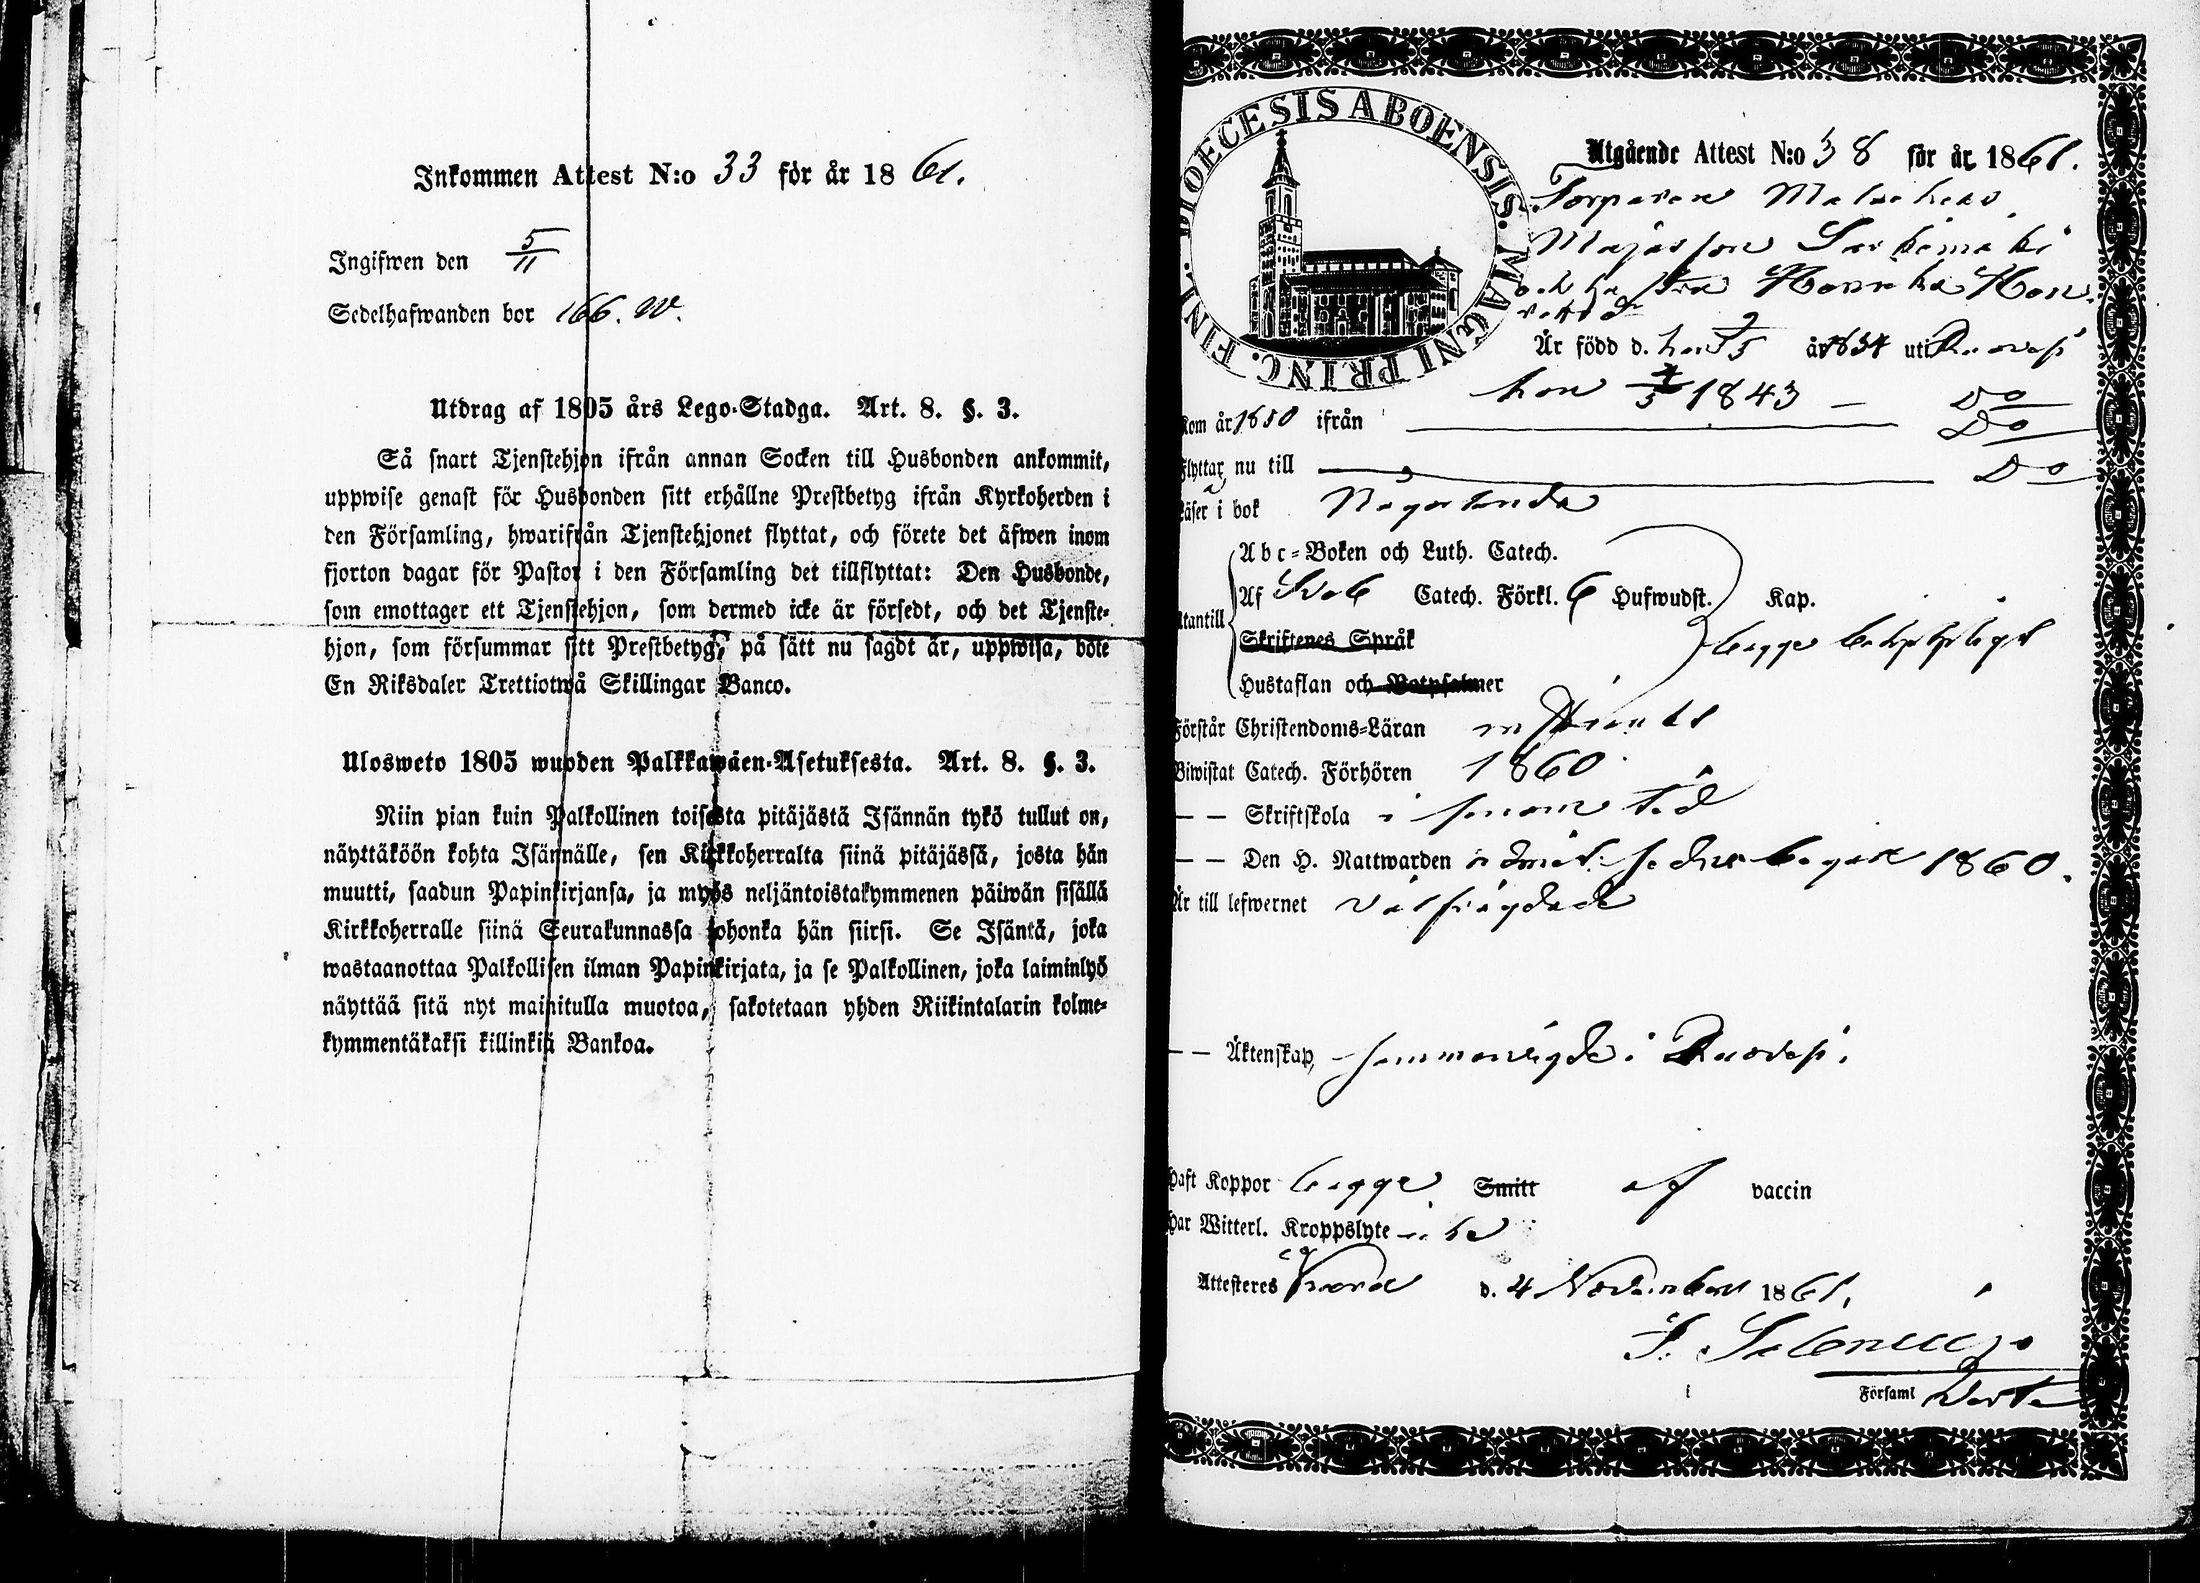 Inkommen Attest N:o 33 för år 1861.
Ingifwen den 5/11
Sedelhafwanden bor 166. W.
Utdrag af 1805 års Lego-Stadga. Art. 8. §. 3.
Så snart Tjenstehjon ifrån annan Socken till Husbonden ankommit,
uppwise genast för Husbonden sitt erhållne Prestbetyg ifrån Kyrkoherden i
den Församling, hwarifrån Tjenstehjonet flyttat, och förete det äfwen inom
fjorton dagar för Pastor i den Församling det tillflyttat: Den Husbonde,
som emottager ett Tjenstehjon, som dermed icke är försedt, och det Tjenste-
hjon, som försummar sitt Prestbetyg, på sätt nu sagdt är, uppwisa, böte
En Riksdaler Trettiotwå Skillingar Banco.
Ulosweto 1805 wuoden Palkkawäen-Asetuksesta. Art. 8. §. 3.
Niin pian kuin Palkollinen toisesta pitäjästä Isännän tykö tullut on,
näyttäköön kohta Isännälle, sen Kirkkoherralta siinä pitäjässä, josta hän
muutti, saadun Papinkirjansa, ja myös neljäntoistakymmenen päiwän sisällä
Kirkkoherralle siinä Seurakunnassa johonka hän siirsi. Se Isäntä, joka
wastaanottaa Palkollisen ilman Papinkirjata, ja se Palkollinen, joka laiminlyö
näyttää sitä nyt mainitulla muotoa, sakotetaan yhden Riikintalarin kolme-
kymmentäkaksi killinkiä Bankoa.
DIOECESIS ABOENSIS. MAGNI PRINC. FINL.
Utgående Attest N:o 38 för år 1861.
Torparen
och hustru
Är född d. han år 1834 uti Ruovesi
hon 1843 — Do
Kom år 1850 ifrån Do
Flyttar nu till Do
Läser i bok Någorlunda
Abc-Boken och Luth. Catech.
Af Catech. Förkl. 6 Hufwudst. Kap.
Utantill
Skriftenes Språk begge
Hustaflan och Botpsalmer
Förstår Christendoms-Läran
Biwistat Catech. Förhören 1860
— — Skriftskola i sinom tid
— — Den H. Nattwarden 1860.
Är till lefwernet välfrägdade
— — Äktenskap, sammanvigde i Ruovesi.
Haft Koppor begge Smitt af vaccin
Har Witterl. Kroppslyte
Attesteres d. 4 November 1861.
i Församl